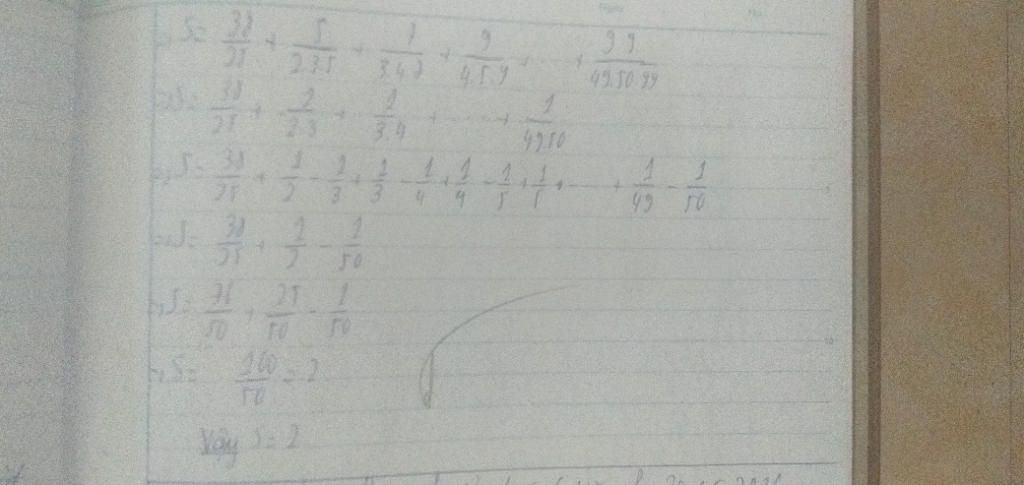 S = 38/25 + 5/2.3.5 + 7/3.4.7 + 9/4.5.9 + ... + 99/49.50.99
=> S = 38/25 + 1/2.3 + 1/3.4 + ... + 1/49.50
=> S = 38/25 + 1/2 - 1/3 + 1/3 - 1/4 + 1/4 - 1/5 + 1/5 + ... + 1/49 - 1/50
=> S = 38/25 + 1/2 - 1/50
=> S = 76/50 + 25/50 - 1/50
=> S = 100/50 = 2
Vậy S = 2